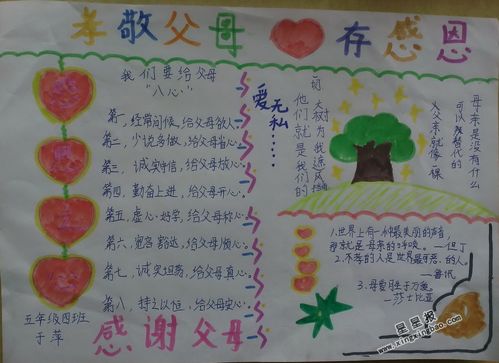 孝敬父母 存感恩
我们要给父母
"八心"
第一，经常问候，给父母
第二，少说多做，给父母省心。
第三，诚实守信，给父母放心。
第四，勤奋上进，给父母开心。
第五，虚心好学，给父母称心。
第六，宽容豁达，给父母顺心。
第七，诚实坦荡，给父母真心。
第八，持之以恒，给父母安心。
五年级四班
于萍
感谢父母
爱无私……
母亲是没有什么
可以代替的
父亲就像一棵
大树为我遮风挡
他们就是我们的
1.世界上有一种最美丽的声音，
那就是母亲的呼唤。—但丁
2.不孝的人是世界最可恶的人。
—鲁讯
3.母爱胜于万爱。
—莎士比亚
星星报
www.xingxingbao.com